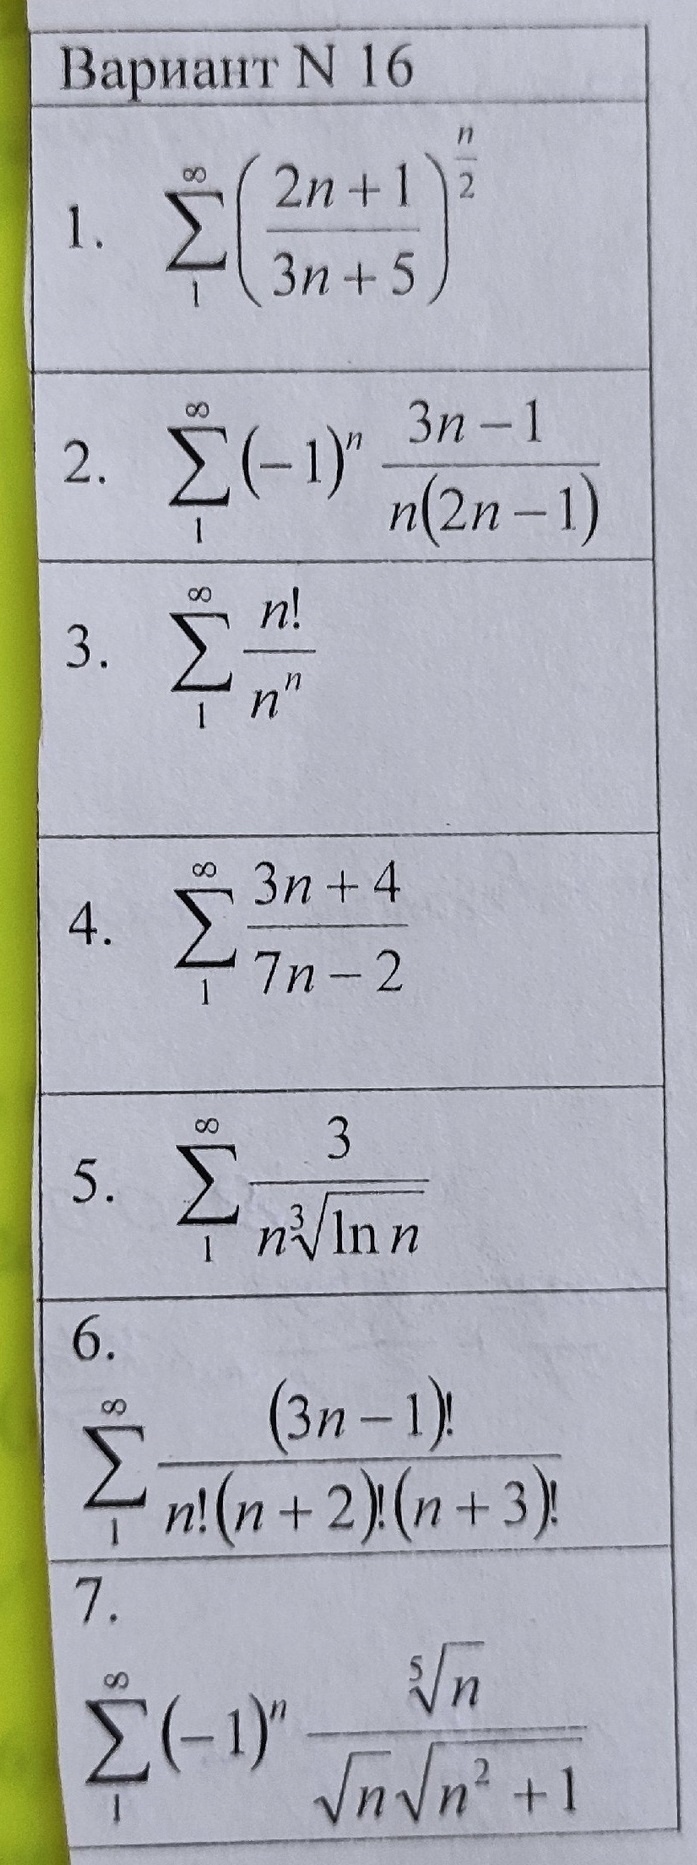 Вариант N 16
1. $\sum_{1}^{\infty}\left(\frac{2n+1}{3n+5}\right)^{\frac{n}{2}}$
2. $\sum_{1}^{\infty}(-1)^n\frac{3n-1}{n(2n-1)}$
3. $\sum_{1}^{\infty}\frac{n!}{n^n}$
4. $\sum_{1}^{\infty}\frac{3n+4}{7n-2}$
5. $\sum_{1}^{\infty}\frac{3}{n\sqrt[3]{\ln n}}$
6.
$\sum_{1}^{\infty}\frac{(3n-1)!}{n!(n+2)!(n+3)!}$
7.
$\sum_{1}^{\infty}(-1)^n\frac{\sqrt[5]{n}}{\sqrt{n}\sqrt{n^2+1}}$